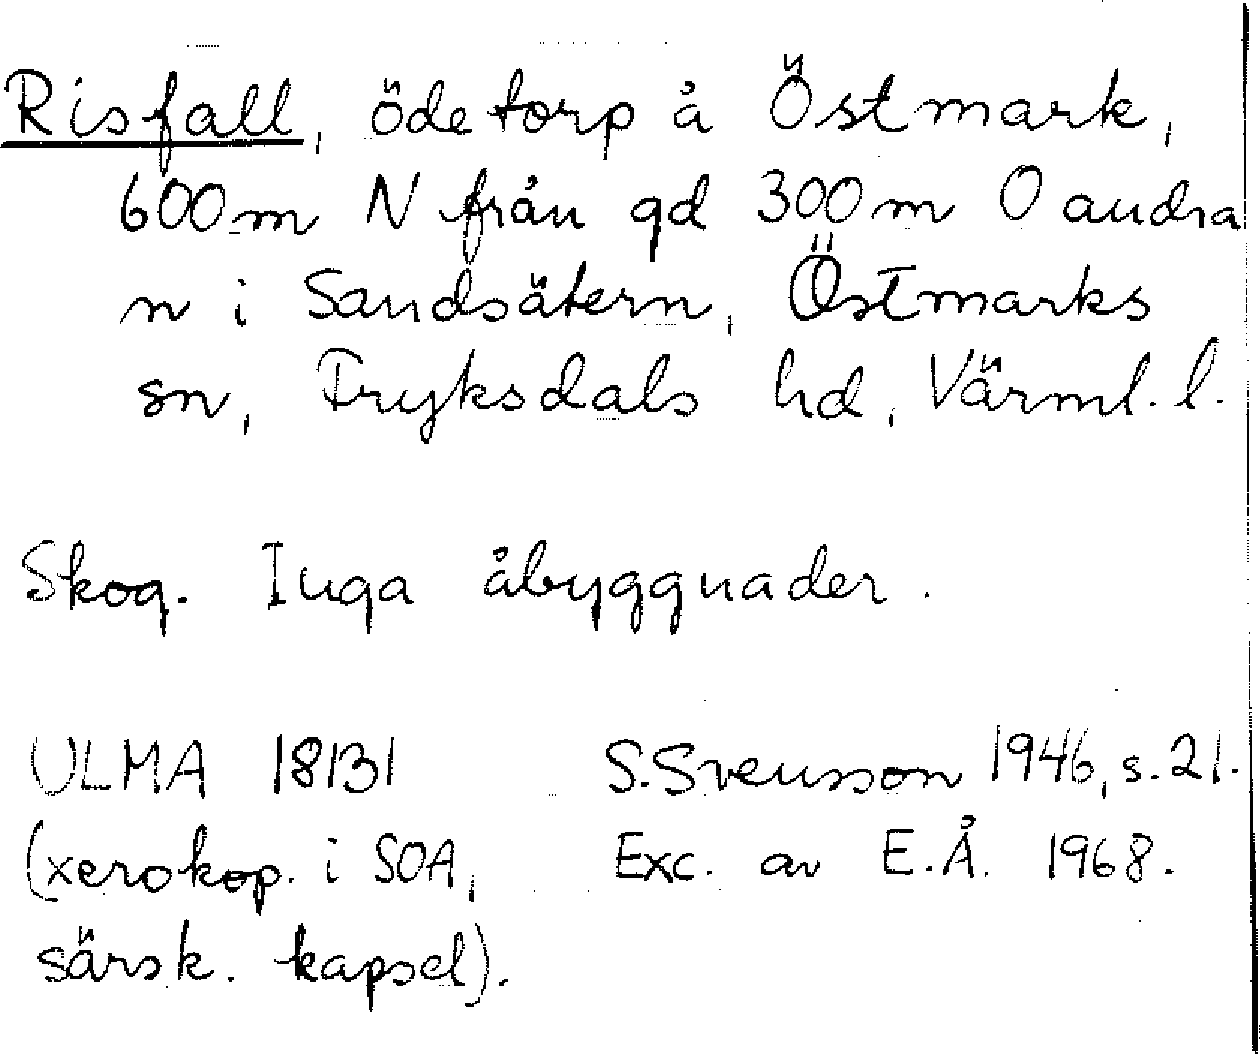 Risfall, ödetorp å Östmark,
600 m N från gd 300 m O andra
n i Sandsätern, Östmarks
sn, Fryksdals hd, Värml. l.
Skog. Inga åbyggnader.
ULMA 18131 S. Svensson 1946, s. 21.
(xerokop. i SOA, Exc. av E.Å. 1968.
särsk. kapsel).